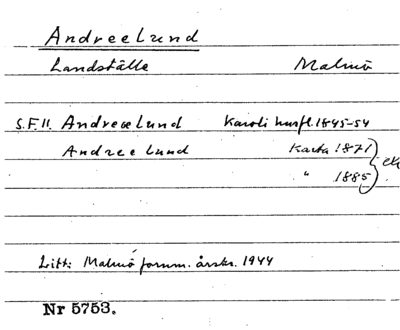 Andreelund
Landställe Malmö
S.F.11. Andreelund Karoli husfl. 1845-54
Andreelund Karta 1871
" 1885
Litt: Malmö fornm. årsskr. 1944
Nr 5753.